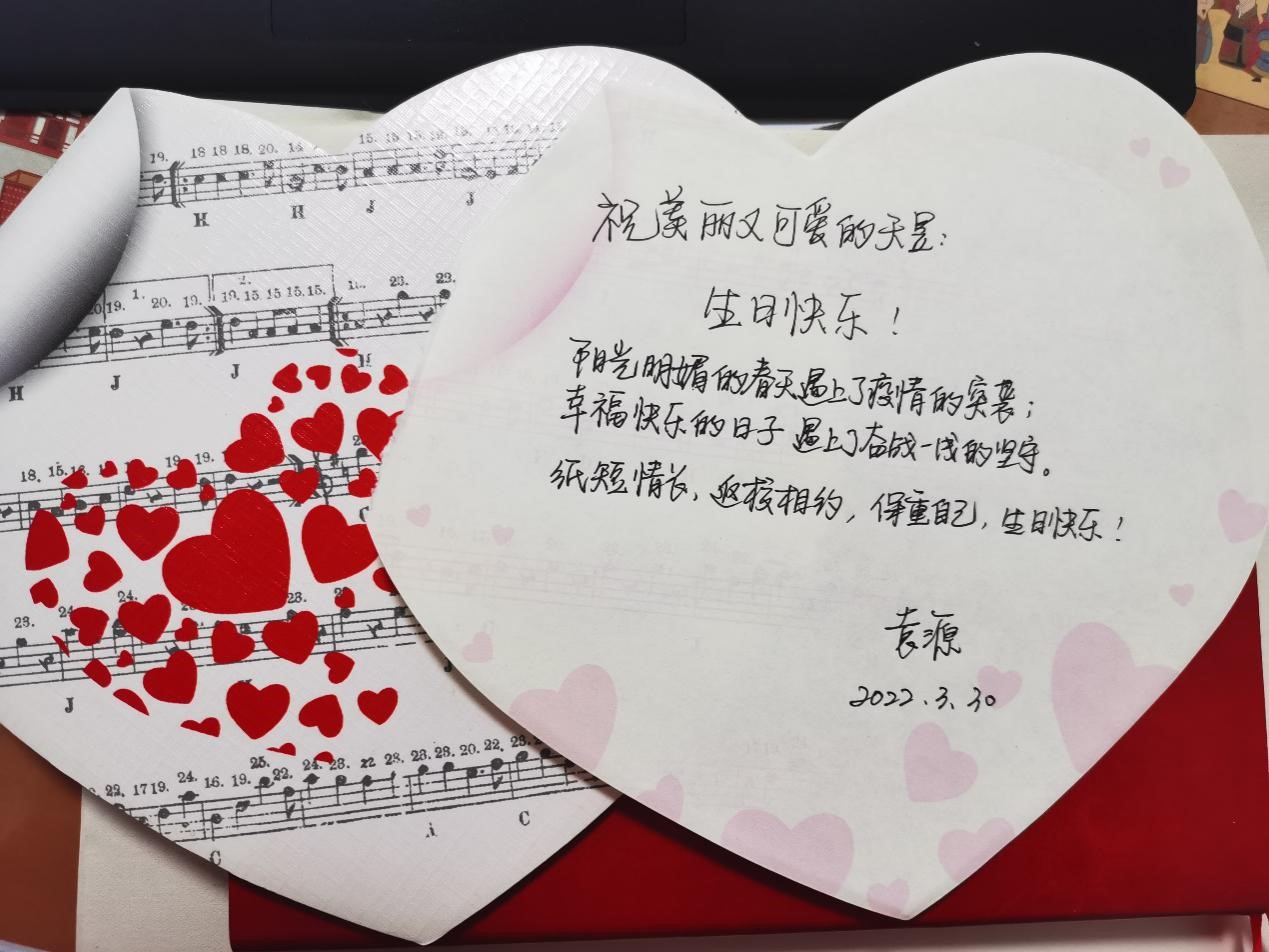 祝美丽又可爱的天昱:
生日快乐!
阳光明媚的春天遇上了疫情的突袭;
幸福快乐的日子遇上了奋战一线的坚守。
纸短情长,返校相约,保重自己,生日快乐!
袁源
2022.3.30
19. 18 18 18. 20. 14 15. 15 15
H H J J
1. 20. 19. 2. 19. 15 15 15. 15. 23. 23.
H J J H
18. 15. 19 19.
24. 24. 23.
23.
J
22. 1719. 24. 16. 19. 25. 22. 24. 23. 22 23. 23. 23. 20. 22. 23.
C C